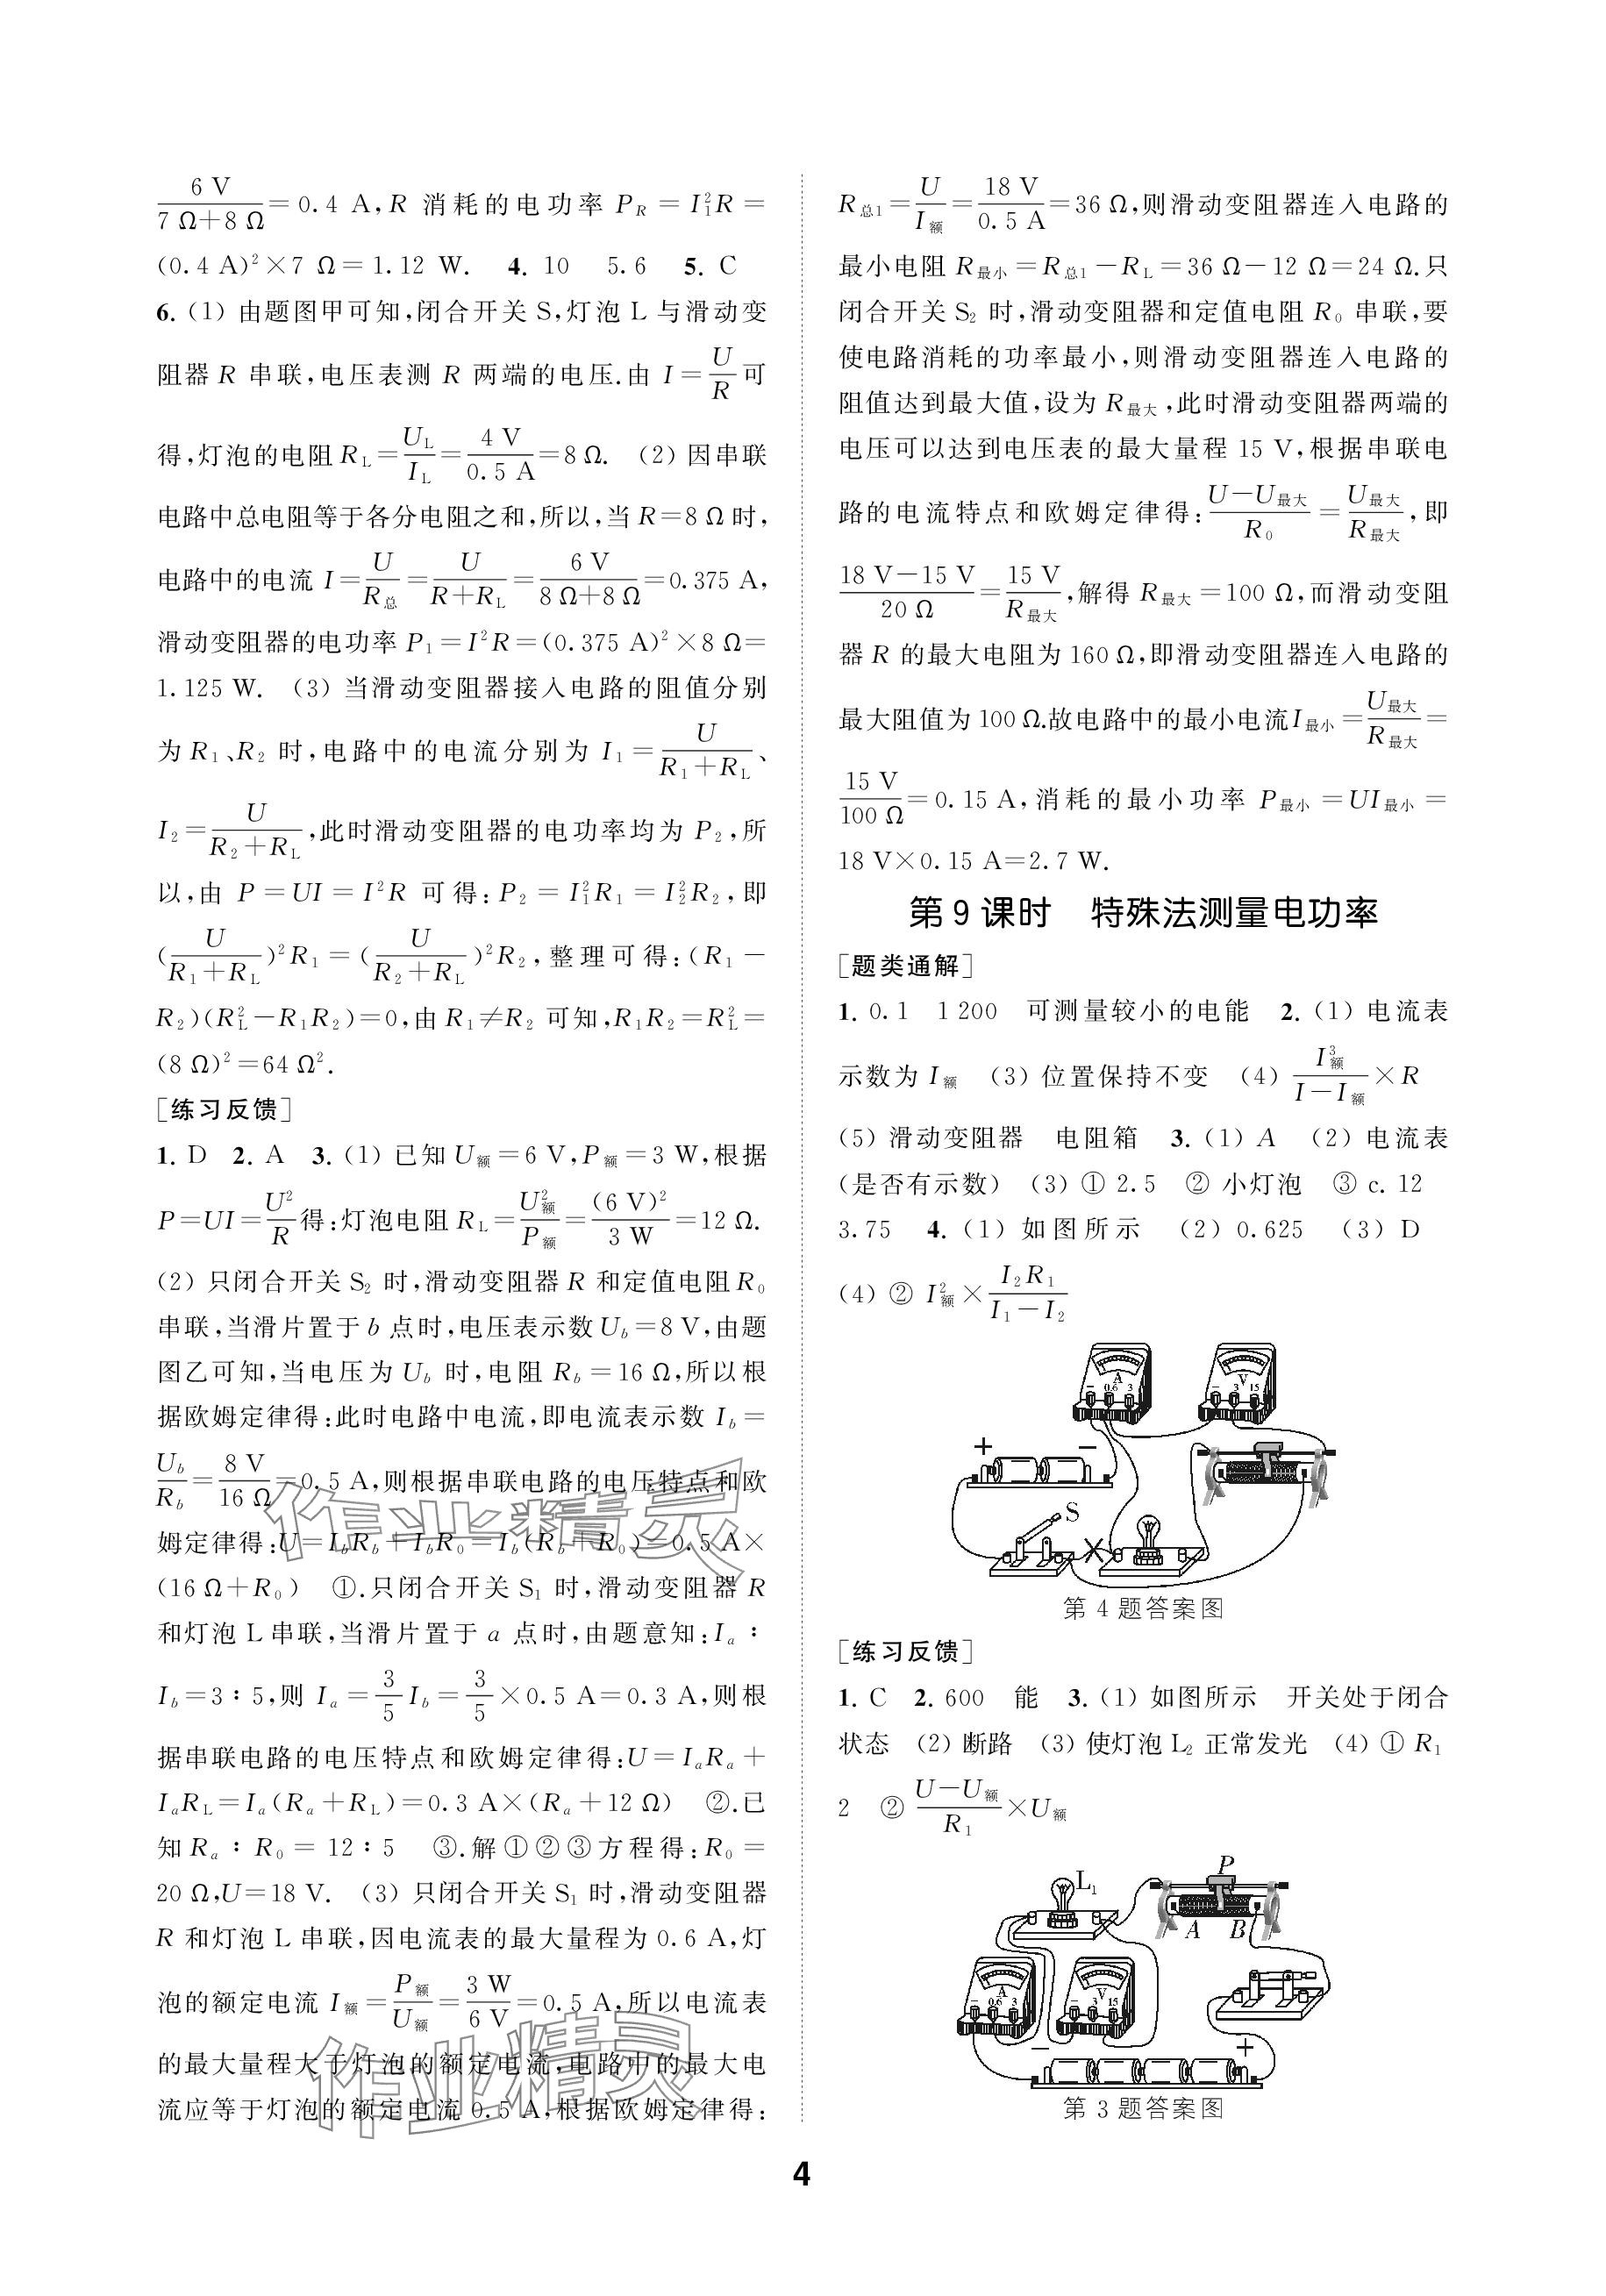 6 V/(7 Ω+8 Ω)=0.4 A,R 消耗的电功率 P_R=I₁²R=
(0.4 A)²×7 Ω=1.12 W. 4. 10 5.6 5. C
6.(1) 由题图甲可知,闭合开关 S,灯泡 L 与滑动变
阻器 R 串联,电压表测 R 两端的电压.由 I=U/R 可
得,灯泡的电阻 R_L=U_L/I_L=4 V/0.5 A=8 Ω. (2) 因串联
电路中总电阻等于各分电阻之和,所以,当 R=8 Ω 时,
电路中的电流 I=U/R_总=U/(R+R_L)=6 V/(8 Ω+8 Ω)=0.375 A,
滑动变阻器的电功率 P₁=I²R=(0.375 A)²×8 Ω=
1.125 W. (3) 当滑动变阻器接入电路的阻值分别
为 R₁、R₂ 时,电路中的电流分别为 I₁=U/(R₁+R_L)、
I₂=U/(R₂+R_L),此时滑动变阻器的电功率均为 P₂,所
以,由 P=UI=I²R 可得:P₂=I₁²R₁=I₂²R₂,即
(U/(R₁+R_L))²R₁=(U/(R₂+R_L))²R₂,整理可得:(R₁-
R₂)(R_L²-R₁R₂)=0,由 R₁≠R₂ 可知,R₁R₂=R_L²=
(8 Ω)²=64 Ω².
[练习反馈]
1. D 2. A 3.(1) 已知 U_额=6 V,P_额=3 W,根据
P=UI=U²/R 得:灯泡电阻 R_L=U_额²/P_额=(6 V)²/3 W=12 Ω.
(2) 只闭合开关 S₂ 时,滑动变阻器 R 和定值电阻 R₀
串联,当滑片置于 b 点时,电压表示数 U_b=8 V,由题
图乙可知,当电压为 U_b 时,电阻 R_b=16 Ω,所以根
据欧姆定律得:此时电路中电流,即电流表示数 I_b=
U_b/R_b=8 V/16 Ω=0.5 A,则根据串联电路的电压特点和欧
姆定律得:U=I_bR_b+I_bR₀=I_b(R_b+R₀)=0.5 A×
(16 Ω+R₀) ①.只闭合开关 S₁ 时,滑动变阻器 R
和灯泡 L 串联,当滑片置于 a 点时,由题意知:I_a∶
I_b=3∶5,则 I_a=3/5 I_b=3/5×0.5 A=0.3 A,则根
据串联电路的电压特点和欧姆定律得:U=I_aR_a+
I_aR_L=I_a(R_a+R_L)=0.3 A×(R_a+12 Ω) ②.已
知 R_a∶R₀=12∶5 ③.解①②③方程得:R₀=
20 Ω,U=18 V. (3) 只闭合开关 S₁ 时,滑动变阻器
R 和灯泡 L 串联,因电流表的最大量程为 0.6 A,灯
泡的额定电流 I_额=P_额/U_额=3 W/6 V=0.5 A,所以电流表
的最大量程大于灯泡的额定电流,电路中的最大电
流应等于灯泡的额定电流 0.5 A,根据欧姆定律得:
R_总1=U/I_额=18 V/0.5 A=36 Ω,则滑动变阻器连入电路的
最小电阻 R_最小=R_总1-R_L=36 Ω-12 Ω=24 Ω.只
闭合开关 S₂ 时,滑动变阻器和定值电阻 R₀ 串联,要
使电路消耗的功率最小,则滑动变阻器连入电路的
阻值达到最大值,设为 R_最大,此时滑动变阻器两端的
电压可以达到电压表的最大量程 15 V,根据串联电
路的电流特点和欧姆定律得:(U-U_最大)/R₀=U_最大/R_最大,即
(18 V-15 V)/20 Ω=15 V/R_最大,解得 R_最大=100 Ω,而滑动变阻
器 R 的最大电阻为 160 Ω,即滑动变阻器连入电路的
最大阻值为 100 Ω.故电路中的最小电流 I_最小=U_最大/R_最大=
15 V/100 Ω=0.15 A,消耗的最小功率 P_最小=UI_最小=
18 V×0.15 A=2.7 W.
第 9 课时 特殊法测量电功率
[题类通解]
1. 0.1 1 200 可测量较小的电能 2.(1) 电流表
示数为 I_额 (3) 位置保持不变 (4) I_额³/(I-I_额)×R
(5) 滑动变阻器 电阻箱 3.(1) A (2) 电流表
(是否有示数) (3) ① 2.5 ② 小灯泡 ③ c. 12
3.75 4.(1) 如图所示 (2) 0.625 (3) D
(4) ② I_额²×I₂R₁/(I₁-I₂)
A
- 0.6 3
V
- 3 15
+ -
S
第 4 题答案图
[练习反馈]
1. C 2. 600 能 3.(1) 如图所示 开关处于闭合
状态 (2) 断路 (3) 使灯泡 L₂ 正常发光 (4) ① R₁
2 ② (U-U_额)/R₁×U_额
L₁
P
A B
A
- 0.6 3
V
- 3 15
- +
第 3 题答案图
4
作业精灵
作业精灵